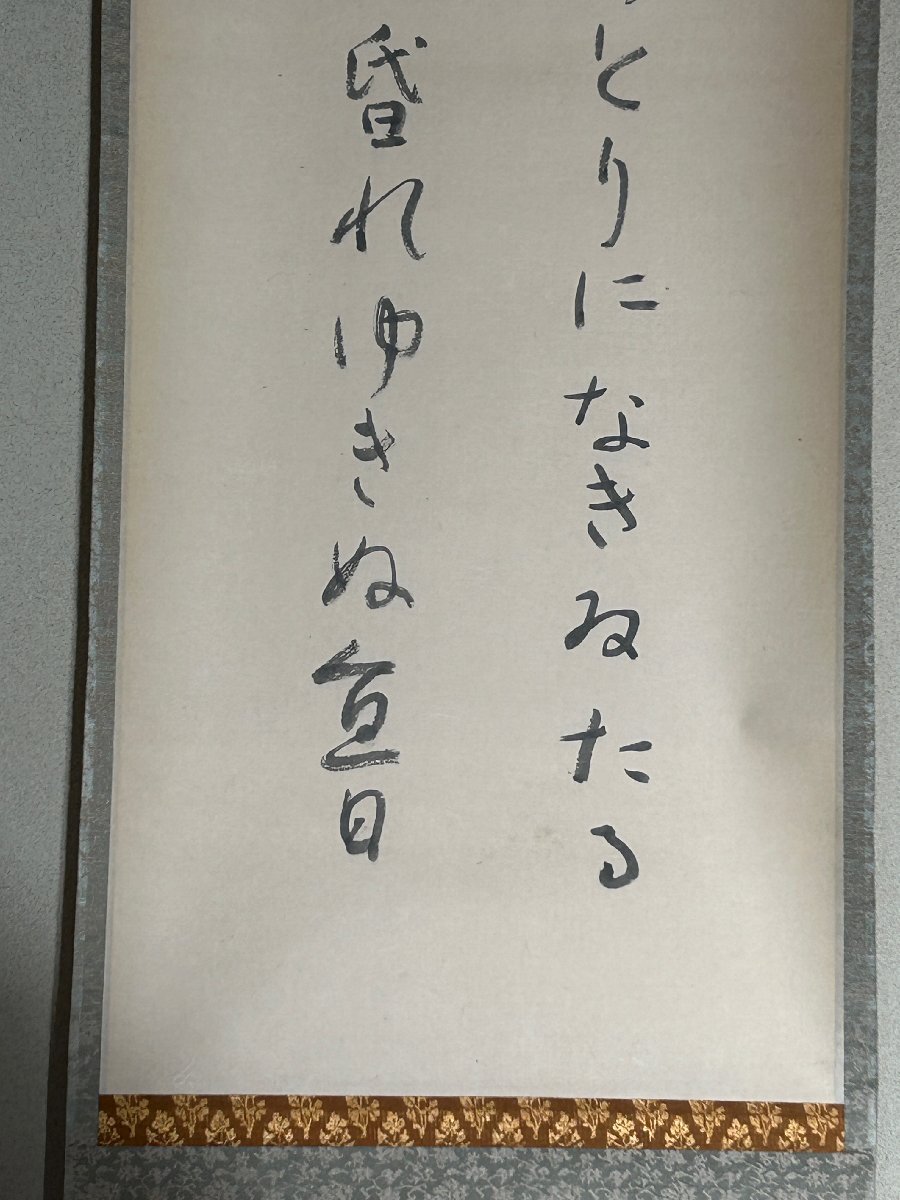 とりになきゐたる
昏れゆきぬ亘日